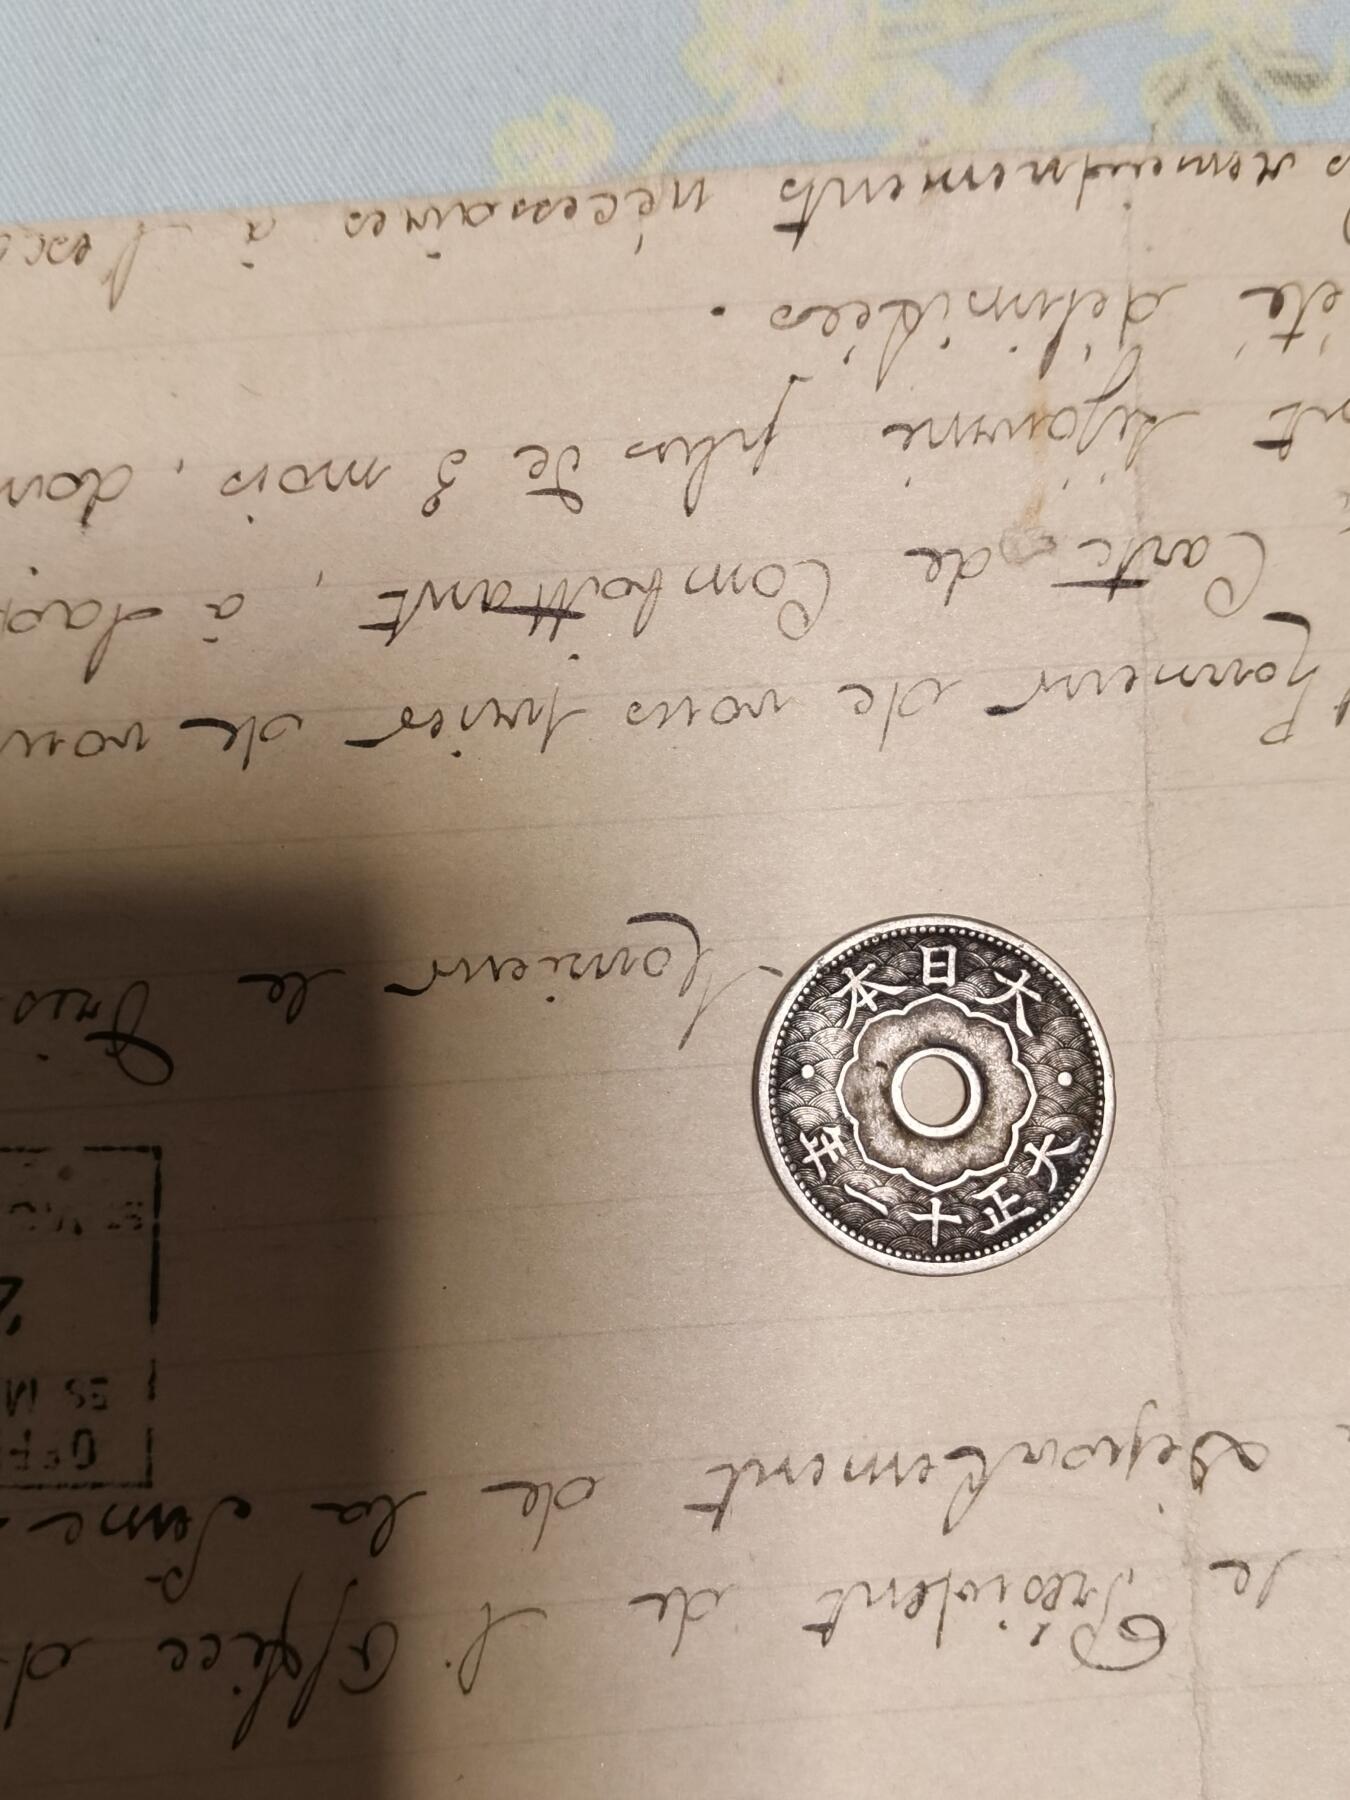 le Président de l'Office d
Département de la Seine.
OFF
ES M
Monsieur le Prés
l'honneur de vous prier de vou
Carte de Combattant, à laq
nt séjourné plus de 3 mois, dan
été délimitées.
renseignements nécessaires à l'exa
大日本
大正十一年